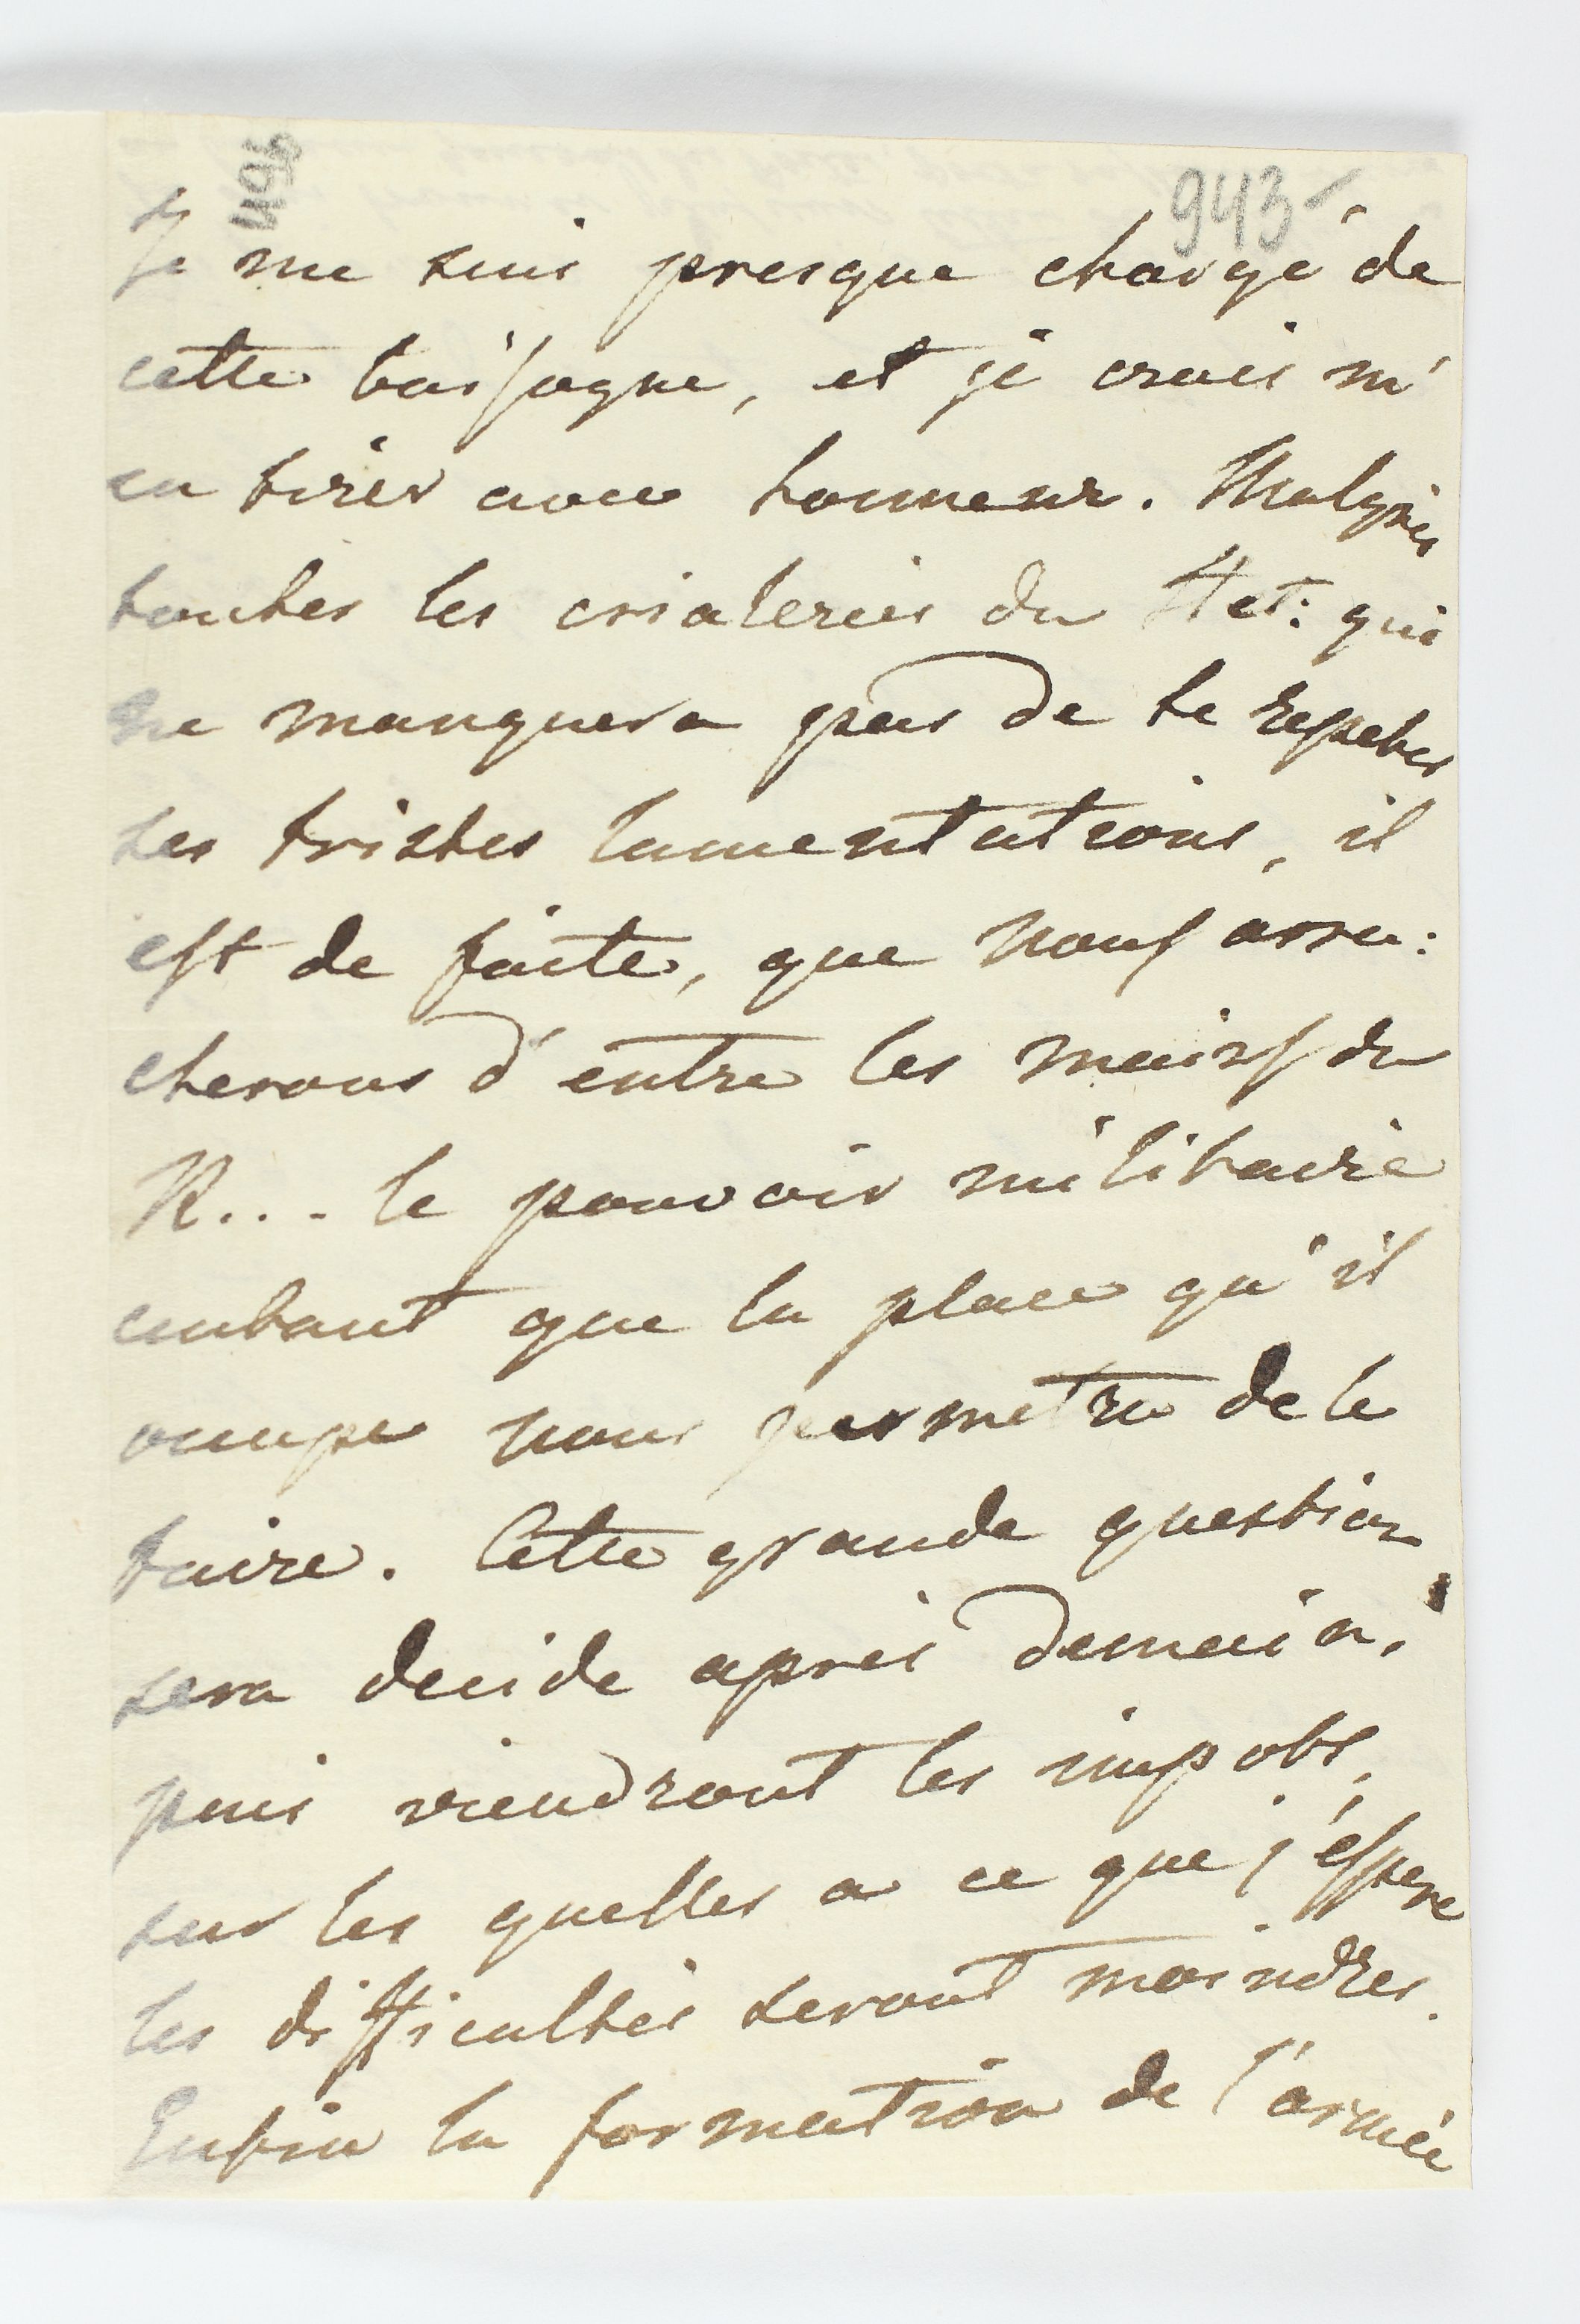 496
943
Je me suis presque chargé de
cette baisogne, et je crois m'
en tirer avec honneur. Malgrés
toutes les crialeries du St et: qui
ne manquera pas de te repeter
ses tristes lamentations, il
est de faite, que nous arra:
cherons d'entre les mains du
R... le pouvoir militaire
entant que la place qu'il
occupe nous permetra de le
faire. Cette grande question
sera decide après demain,
puis viendront les impots,
sur les quelles a ce que j'éspere
les difficultés seront moindres.
Enfin la formation de l'armée